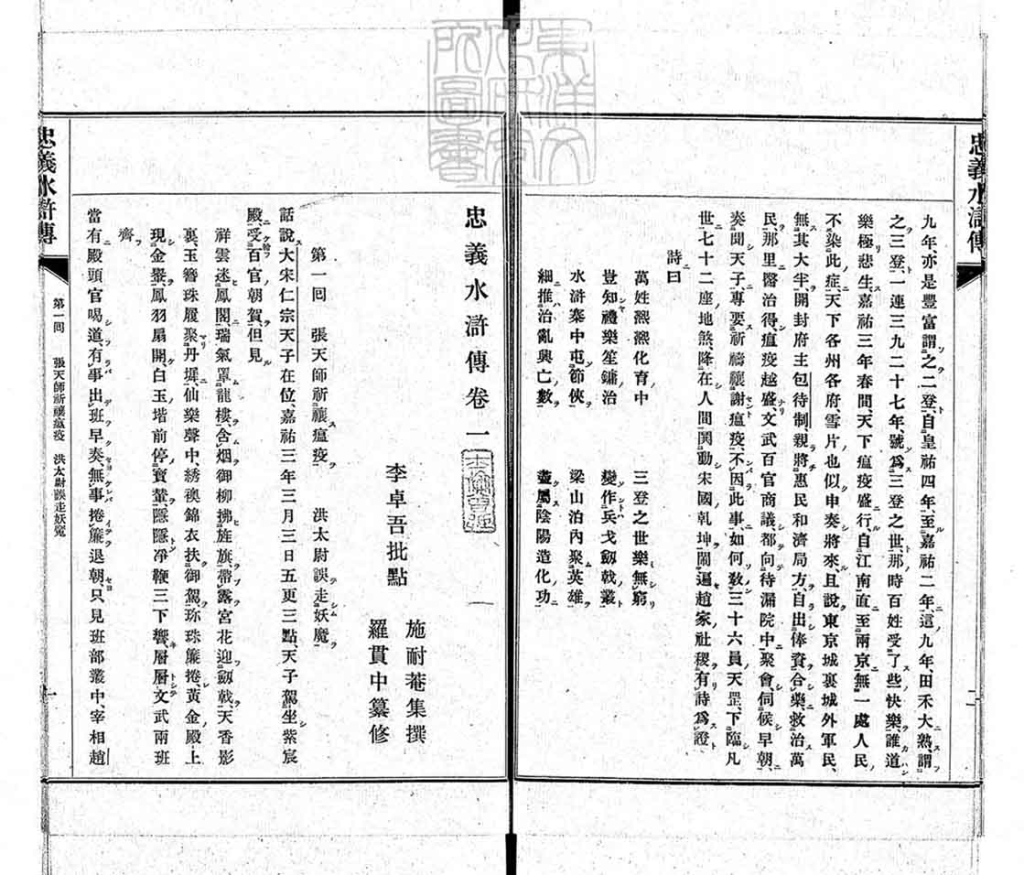 忠義水滸傳
九年亦是豐富謂之二登自皇祐四年至嘉祐二年這九年田禾大熟謂
之三登一連三九二十七年號爲三登之世那時百姓受了些快樂誰道
樂極悲生嘉祐三年春間天下瘟疫盛行自江南直至兩京無一處人民
不染此症天下各州各府雪片也似申奏將來且說東京城裏城外軍民
無其大半開封府主包待制親將惠民和濟局方自出俸資合藥救治萬
民那里醫治得瘟疫越盛文武百官商議都向待漏院中聚會伺候早朝
奏聞天子專要祈禱禳謝瘟疫不因此事如何敎三十六員天罡下臨凡
世七十二座地煞降在人間鬨動宋國乾坤鬧遍趙家社稷有詩爲證
詩曰
萬姓熙熙化育中　三登之世樂無窮
豈知禮樂笙鏞治　變作兵戈劔戟叢
水滸寨中屯節俠　梁山泊內聚英雄
細推治亂興亡數　盡屬陰陽造化功
忠義水滸傳卷一
李卓吾批點
一
施耐菴集撰
羅貫中纂修
第一回　張天師祈禳瘟疫　洪太尉誤走妖魔
話說大宋仁宗天子在位嘉祐三年三月三日五更三點天子駕坐紫宸
殿受百官朝賀但見
祥雲迷鳳閣瑞氣罩龍樓含烟御柳拂旌旗帶露宮花迎劔戟天香影
裏玉簪珠履聚丹墀仙樂聲中綉襖錦衣扶御駕珎珠簾捲黃金殿上
現金轝鳳羽扇開白玉堦前停寶輦隱隱淨鞭三下響層層文武兩班
齊
當有殿頭官喝道有事出班早奏無事捲簾退朝只見班部叢中宰相趙
忠義水滸傳
第一回　張天師祈禳瘟疫　洪太尉誤走妖魔
一